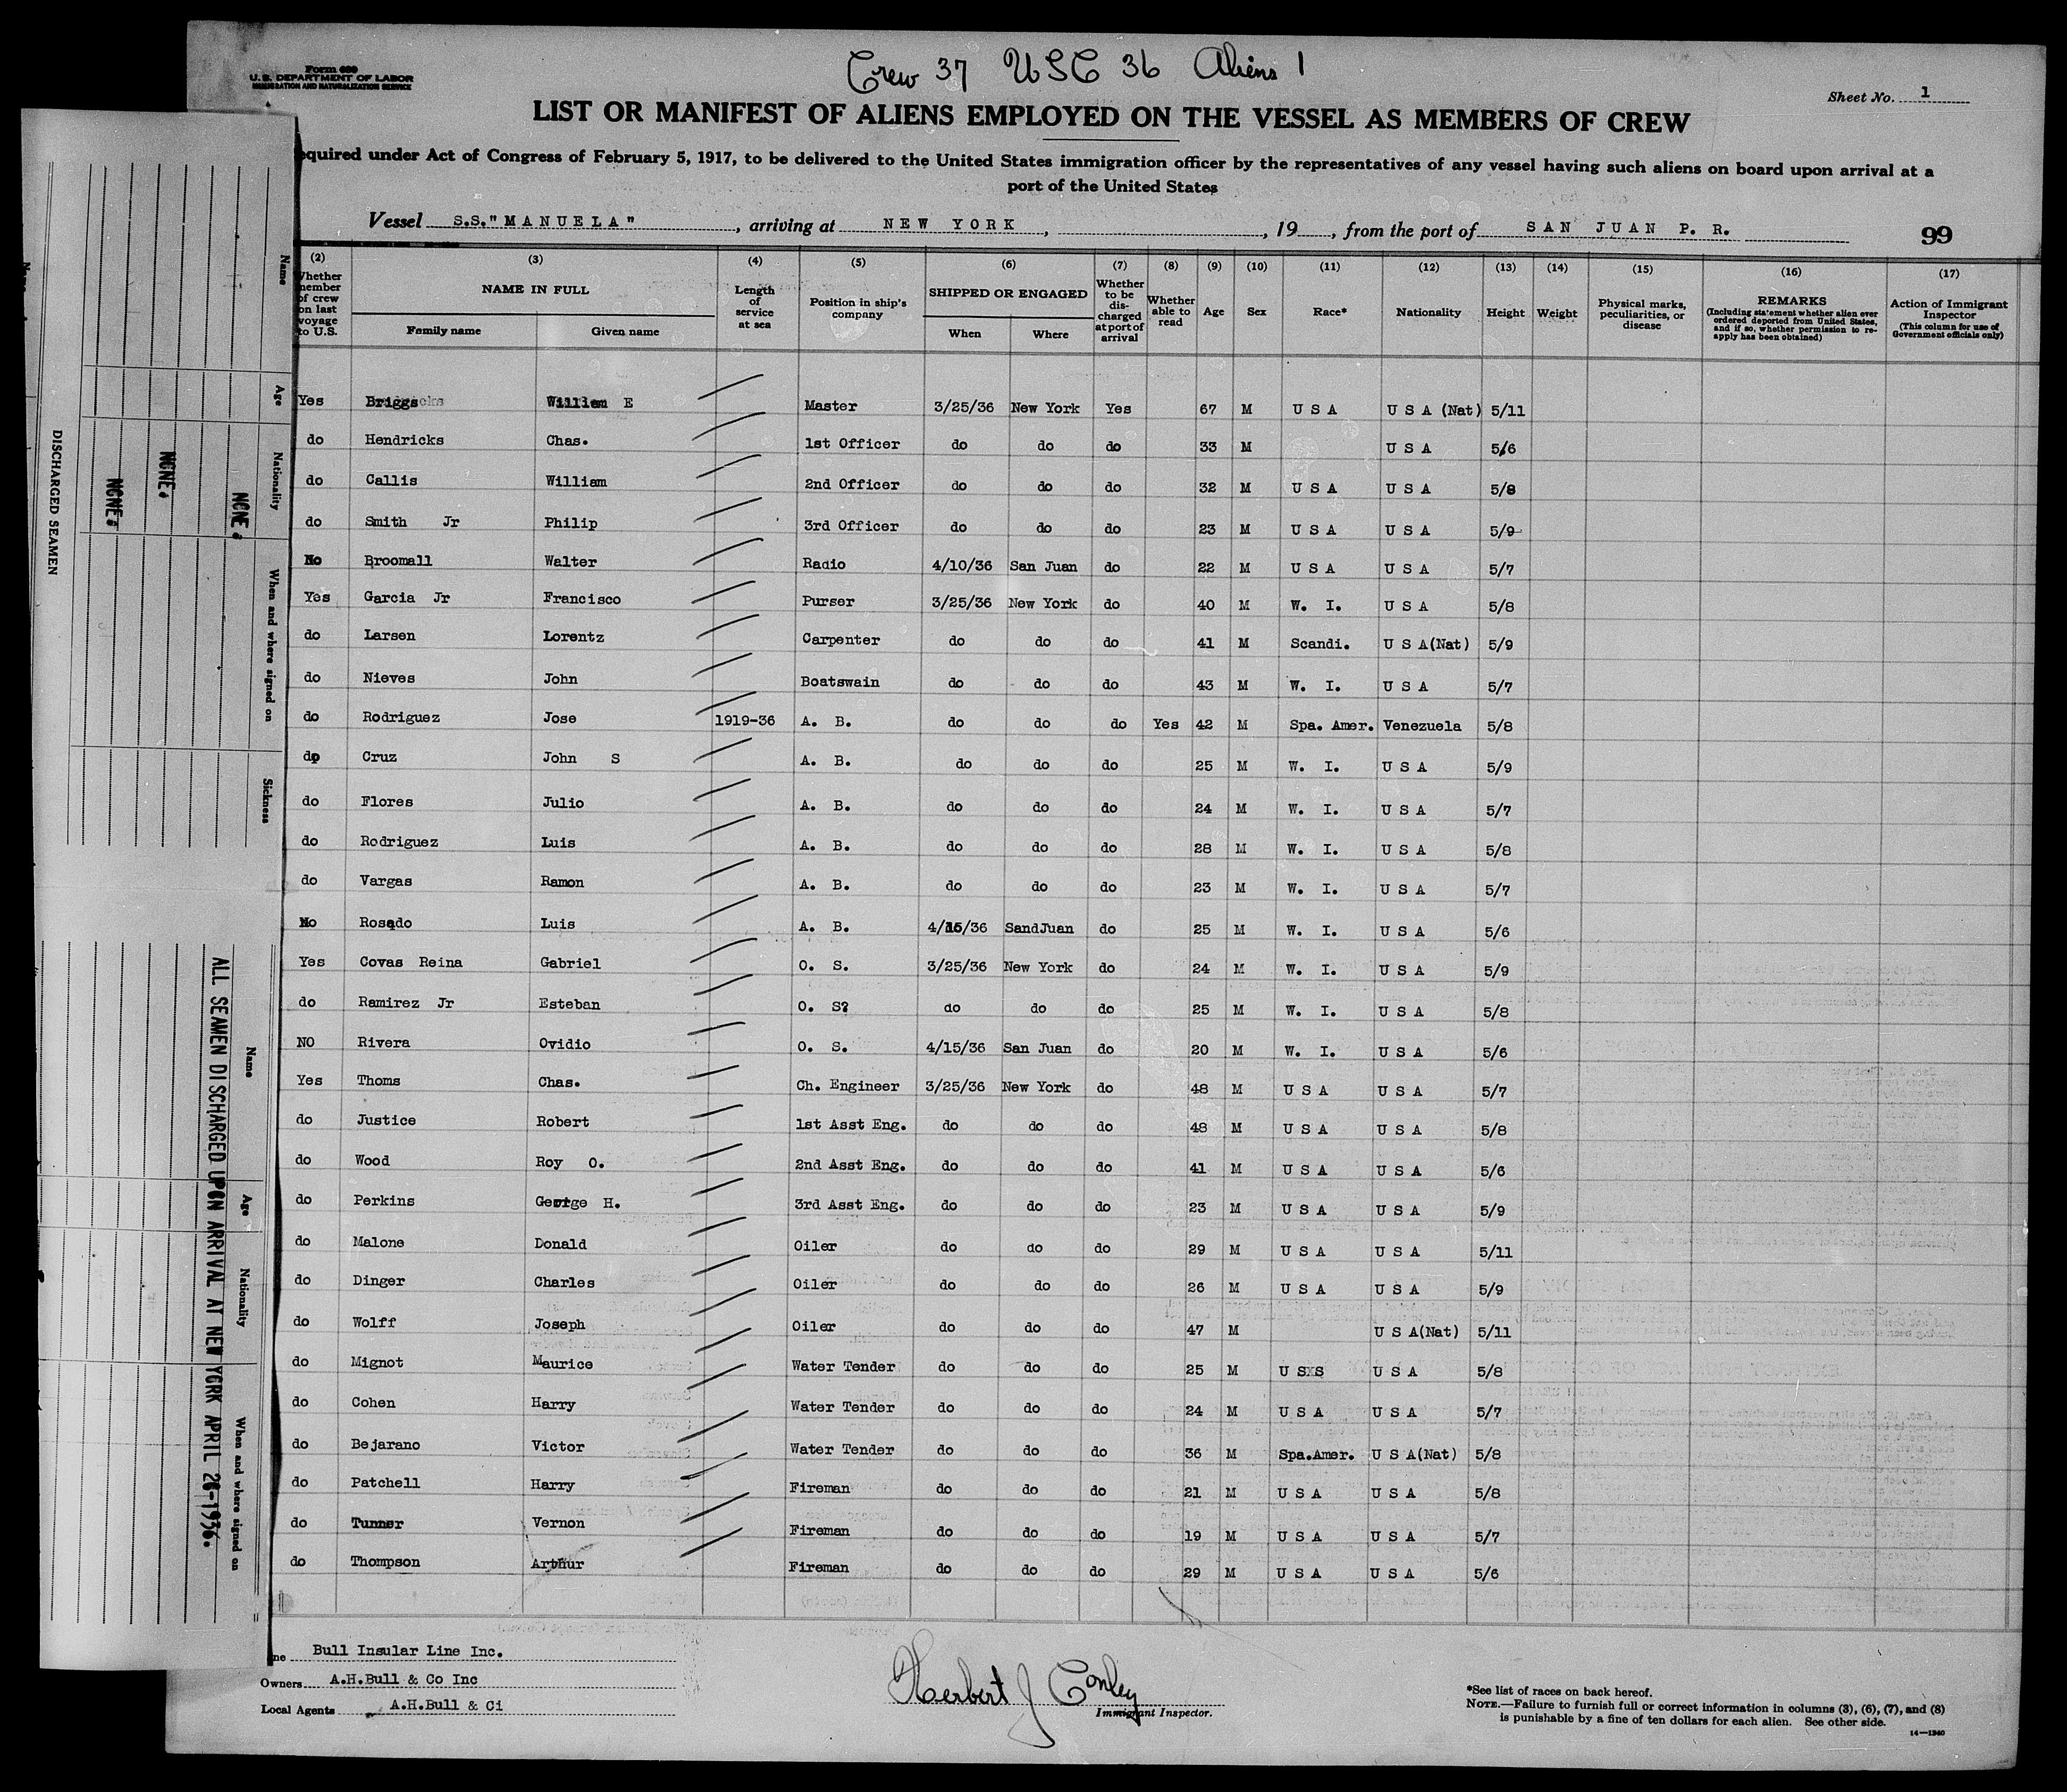 Crew 37 USC 36 Aliens 1
Form 680
U.S. DEPARTMENT OF LABOR
IMMIGRATION AND NATURALIZATION SERVICE
Sheet No. 1
LIST OR MANIFEST OF ALIENS EMPLOYED ON THE VESSEL AS MEMBERS OF CREW
equired under Act of Congress of February 5, 1917, to be delivered to the United States immigration officer by the representatives of any vessel having such aliens on board upon arrival at a
port of the United States
Vessel S.S."MANUELA", arriving at NEW YORK, , 19 , from the port of SAN JUAN P. R. 99
(2) (3) (4) (5) (6) (7) (8) (9) (10) (11) (12) (13) (14) (15) (16) (17)
Whether member of crew on last voyage to U.S. NAME IN FULL Family name Given name Length of service at sea Position in ship's company SHIPPED OR ENGAGED When Where Whether to be discharged at port of arrival Whether able to read Age Sex Race* Nationality Height Weight Physical marks, peculiarities, or disease REMARKS (Including statement whether alien ever ordered deported from United States, and if so, whether permission to re-apply has been obtained) Action of Immigrant Inspector (This column for use of Government officials only)
Yes Briggs William E Master 3/25/36 New York Yes 67 M U S A U S A (Nat) 5/11
do Hendricks Chas. 1st Officer do do do 33 M U S A 5/6
do Callis William 2nd Officer do do do 32 M U S A U S A 5/8
do Smith Jr Philip 3rd Officer do do do 23 M U S A U S A 5/9
No Broomall Walter Radio 4/10/36 San Juan do 22 M U S A U S A 5/7
Yes Garcia Jr Francisco Purser 3/25/36 New York do 40 M W. I. U S A 5/8
do Larsen Lorentz Carpenter do do do 41 M Scandi. U S A(Nat) 5/9
do Nieves John Boatswain do do do 43 M W. I. U S A 5/7
do Rodriguez Jose 1919-36 A. B. do do do Yes 42 M Spa. Amer. Venezuela 5/8
do Cruz John S A. B. do do do 25 M W. I. U S A 5/9
do Flores Julio A. B. do do do 24 M W. I. U S A 5/7
do Rodriguez Luis A. B. do do do 28 M W. I. U S A 5/8
do Vargas Ramon A. B. do do do 23 M W. I. U S A 5/7
No Rosado Luis A. B. 4/15/36 SandJuan do 25 M W. I. U S A 5/6
Yes Covas Reina Gabriel O. S. 3/25/36 New York do 24 M W. I. U S A 5/9
do Ramirez Jr Esteban O. S? do do do 25 M W. I. U S A 5/8
NO Rivera Ovidio O. S. 4/15/36 San Juan do 20 M W. I. U S A 5/6
Yes Thoms Chas. Ch. Engineer 3/25/36 New York do 48 M U S A U S A 5/7
do Justice Robert 1st Asst Eng. do do do 48 M U S A U S A 5/8
do Wood Roy O. 2nd Asst Eng. do do do 41 M U S A U S A 5/6
do Perkins George H. 3rd Asst Eng. do do do 23 M U S A U S A 5/9
do Malone Donald Oiler do do do 29 M U S A U S A 5/11
do Dinger Charles Oiler do do do 26 M U S A U S A 5/9
do Wolff Joseph Oiler do do do 47 M U S A(Nat) 5/11
do Mignot Maurice Water Tender do do do 25 M U SXS U S A 5/8
do Cohen Harry Water Tender do do do 24 M U S A U S A 5/7
do Bejarano Victor Water Tender do do do 36 M Spa.Amer. U S A(Nat) 5/8
do Patchell Harry Fireman do do do 21 M U S A U S A 5/8
do Tunner Vernon Fireman do do do 19 M U S A U S A 5/7
do Thompson Arthur Fireman do do do 29 M U S A U S A 5/6
ne Bull Insular Line Inc.
Owners A.H.Bull & Co Inc
Local Agents A.H.Bull & Ci
Herbert J Conley
Immigrant Inspector.
*See list of races on back hereof.
NOTE.—Failure to furnish full or correct information in columns (3), (6), (7), and (8)
is punishable by a fine of ten dollars for each alien. See other side.
14—1240
DISCHARGED SEAMEN
Name Age Nationality When and where signed on Sickness
NONE.
NONE.
NONE.
Name Age Nationality When and where signed on
ALL SEAMEN DISCHARGED UPON ARRIVAL AT NEW YORK APRIL 26-1936.